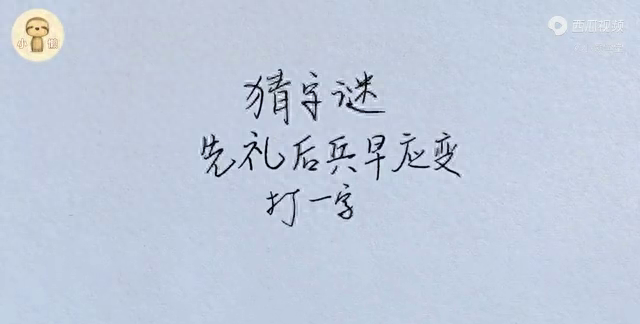 小懒
西瓜视频
猜字谜
先礼后兵早应变
打一字